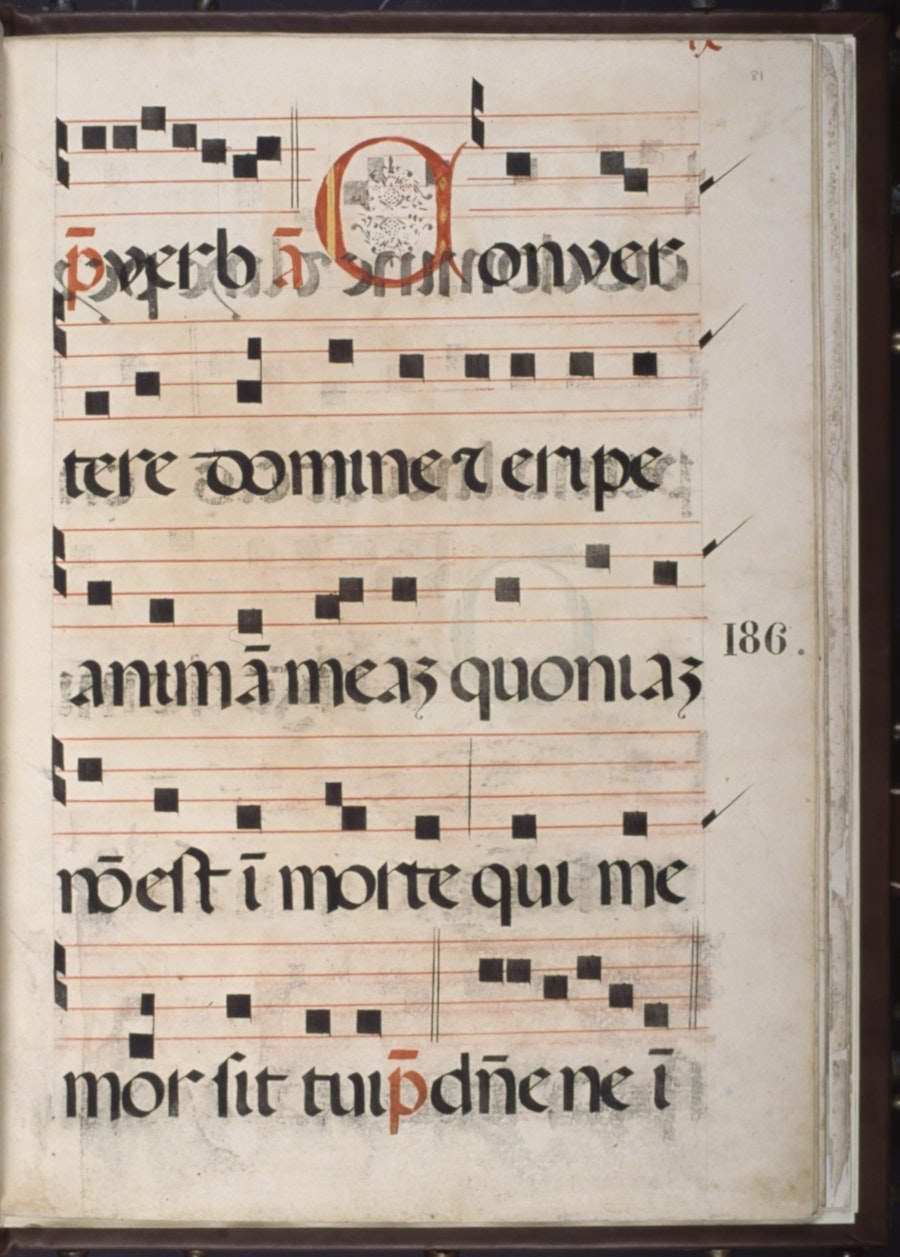 ix
81
p̄ verb ā Conver
tere domine ⁊ eripe
animā meaꝫ quoniaꝫ
186.
nō est ī morte qui me
mor sit tui p̄ dn̄e ne ī